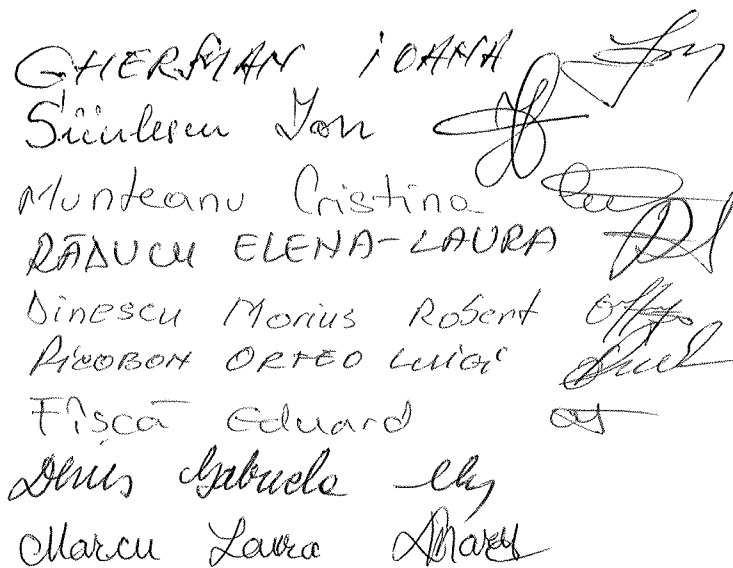 GHERMAN IOANA
Ion
Munteanu Cristina
RĂDUCU ELENA-LAURA
Dinescu Marius Robert
ORFEO LUIGI
Fîșcă Eduard
Denis Gabriela
Marcu Laura